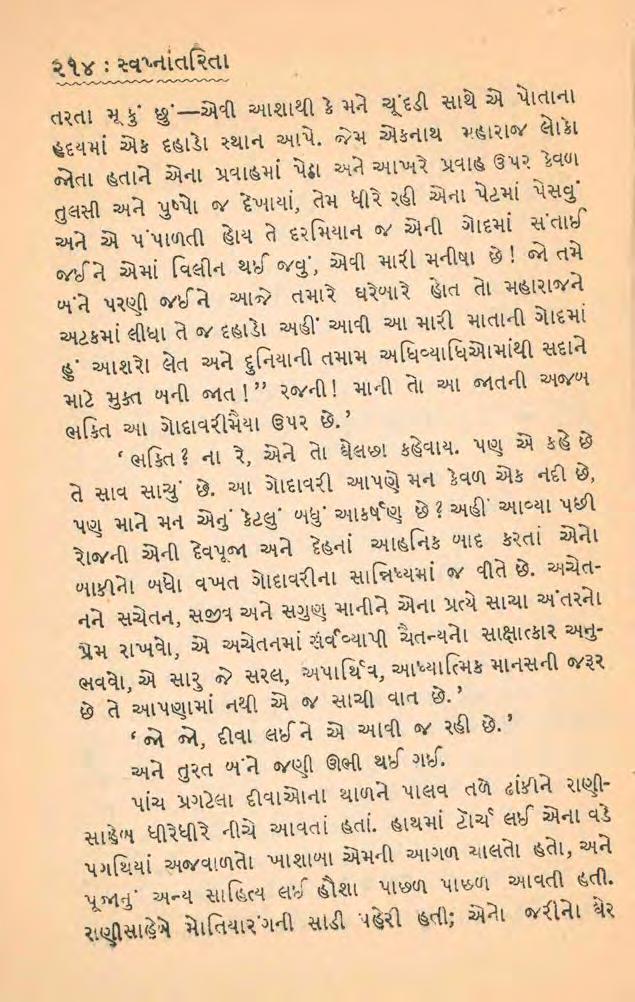 ૨૧૪ : સ્વપ્નાંતરિતા
તરતા મૂકું છું—એવી આશાથી કે મને ચૂંદડી સાથે એ પોતાના
હૃદયમાં એક દહાડો સ્થાન આપે. જેમ એકનાથ મહારાજ લોકો
જોતા હતાને એના પ્રવાહમાં પેઠા અને આખરે પ્રવાહ ઉપર કેવળ
તુલસી અને પુષ્પો જ દેખાયાં, તેમ ધીરે રહી એના પેટમાં પેસવું
અને એ પંપાળતી હોય તે દરમિયાન જ એની ગોદમાં સંતાઈ
જઈને એમાં વિલીન થઈ જવું, એવી મારી મનીષા છે! જો તમે
બંને પરણી જઈને આજે તમારે ઘરેબારે હોત તો મહારાજને
અટકમાં લીધા તે જ દહાડો અહીં આવી આ મારી માતાની ગોદમાં
હું આશરો લેત અને દુનિયાની તમામ અધિવ્યાધિઓમાંથી સદાને
માટે મુક્ત બની જાત!” રજની! માની તો આ જાતની અજબ
ભક્તિ આ ગોદાવરીમૈયા ઉપર છે.’
‘ભક્તિ? ના રે, એને તો ઘેલછા કહેવાય. પણ એ કહે છે
તે સાવ સાચું છે. આ ગોદાવરી આપણે મન કેવળ એક નદી છે,
પણ માને મન એનું કેટલું બધું આકર્ષણ છે? અહીં આવ્યા પછી
રોજની એની દેવપૂજા અને દેહનાં આહનિક બાદ કરતાં એનો
બાકીનો બધો વખત ગોદાવરીના સાન્નિધ્યમાં જ વીતે છે. અચેત-
નને સચેતન, સજીવ અને સગુણ માનીને એના પ્રત્યે સાચા અંતરનો
પ્રેમ રાખવો, એ અચેતનમાં સર્વવ્યાપી ચૈતન્યનો સાક્ષાત્કાર અનુ-
ભવવો, એ સારુ જે સરલ, અપાર્થિવ, આધ્યાત્મિક માનસની જરૂર
છે તે આપણામાં નથી એ જ સાચી વાત છે.’
‘જો જો, દીવા લઈને એ આવી જ રહી છે.’
અને તુરત બંને જણી ઊભી થઈ ગઈ.
પાંચ પ્રગટેલા દીવાઓના થાળને પાલવ તળે ઢાંકીને રાણી-
સાહેબ ધીરેધીરે નીચે આવતાં હતાં. હાથમાં ટૉર્ચ લઈ એના વડે
પગથિયાં અજવાળતો ખાશાબા એમની આગળ ચાલતો હતો, અને
પૂજાનું અન્ય સાહિત્ય લઈ હૌશા પાછળ પાછળ આવતી હતી.
રાણીસાહેબે મોતિયારંગની સાડી પહેરી હતી; એનો જરીનો ઘેર